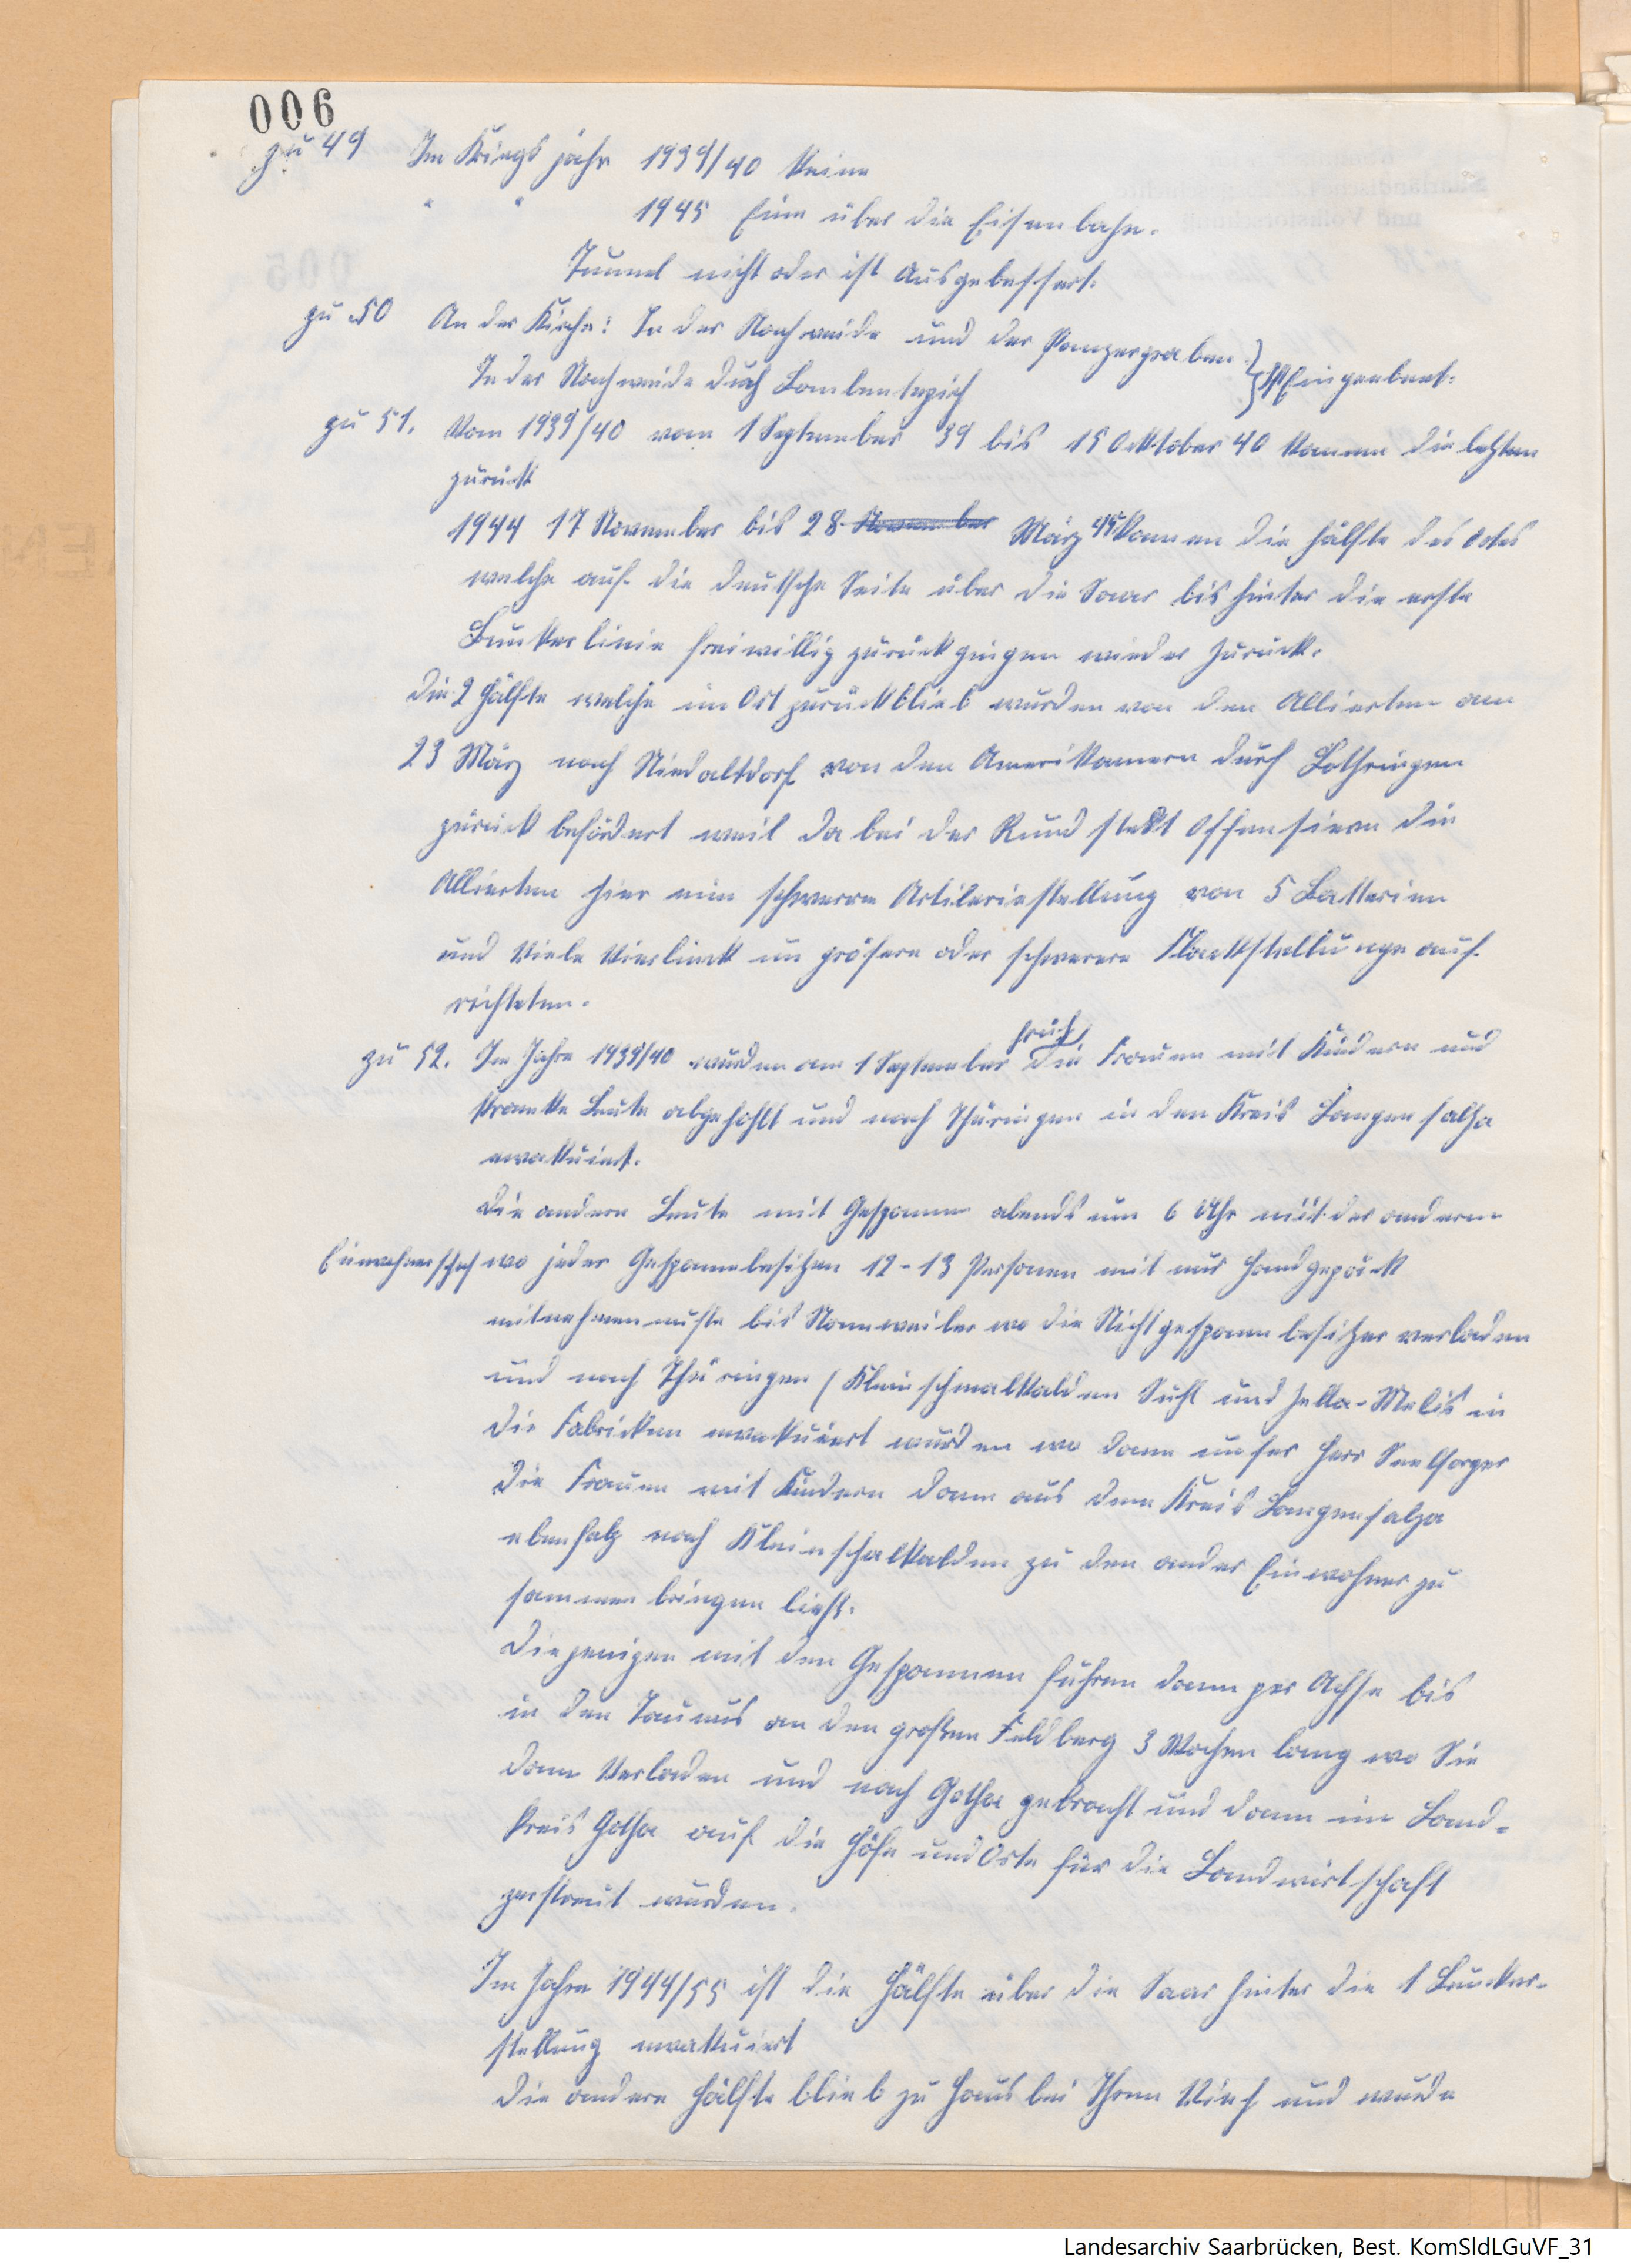 006
zu 49 Im Kriegsjahr 1939/40 keine
" " 1945 Eine über die Eisenbahn.
Tunnel nicht oder ist Ausgebessert.
zu 50 An der Kirche: In der Nachweide und der Panzergraben
In der Nachweide durch Bombenteppich } Ist Eingeebnet.
zu 51. Vom 1939/40 vom 1 September 39 bis 15 Oktober 40 kamen die letzten
zurück
1944 17 November bis 28 November März 45 kamen die hälfte des Ortes
welche auf die deutsche Seite über die Saar bis hinter die erste
Bunkerlinie freiwillig zurückgingen wieder zurück.
die 2 Hälfte welche im Ort zurückblieb wurden von den Allierten am
23 März nach Niedaltdorf von den Amerikanern durch Lothringen
zurück befördert weil da bei der Rundstedt Offensieve die
Allierten hier eine schwerre Artileriestellung von 5 Batterien
und Viele Vierlinck un gröfere oder schwerere Flackstellunge auf
richteten.
zu 52. Im Jahre 1939/40 wurden am 1 September früh die Frauen mit Kindern und
kranke Leute abgehohlt und nach Thüringen in den Kreis Langensalza
evakuiert.
die andern Leute mit Gespannen abends um 6 Uhr mit der andern
Einwohnerschaf wo jeder Gespannbesitzen 12-13 Personen mit nur Handgepäck
mitnehmen muste bis Nonnweiler wo die Nichtgespannbesitzer verladen
und nach Thüringen (Kleinschmalkalden Suhl und Zella-Melis in
die Fabricken evakuiert wurden wo dann unser Herr Seelsorger
die Frauen mit Kindern dann aus dem Kreis Langensalza
ebenfalz nach Kleinschalkalden zu den ander Einwohner zu
sammen bringen ließ.
Diejenigen mit den Gespannen fuhren dann per Achse bis
in den Taunus an den großen Feldberg 3 Wochen lang wo Sie
dann Verladen und nach Gotha gebracht und dann im Land-
kreis Gotha auf die Höfe und Orte für die Landwirtschaft
zerstreut wurden.
Im Jahre 1944/55 ist die Hälfte über die Saar hinter die 1 Buncker-
stellung evakuiert
die andere Hälfte blieb zu Haus bei Ihrem Vieh und wurde
Landesarchiv Saarbrücken, Best. KomSldLGuVF_31